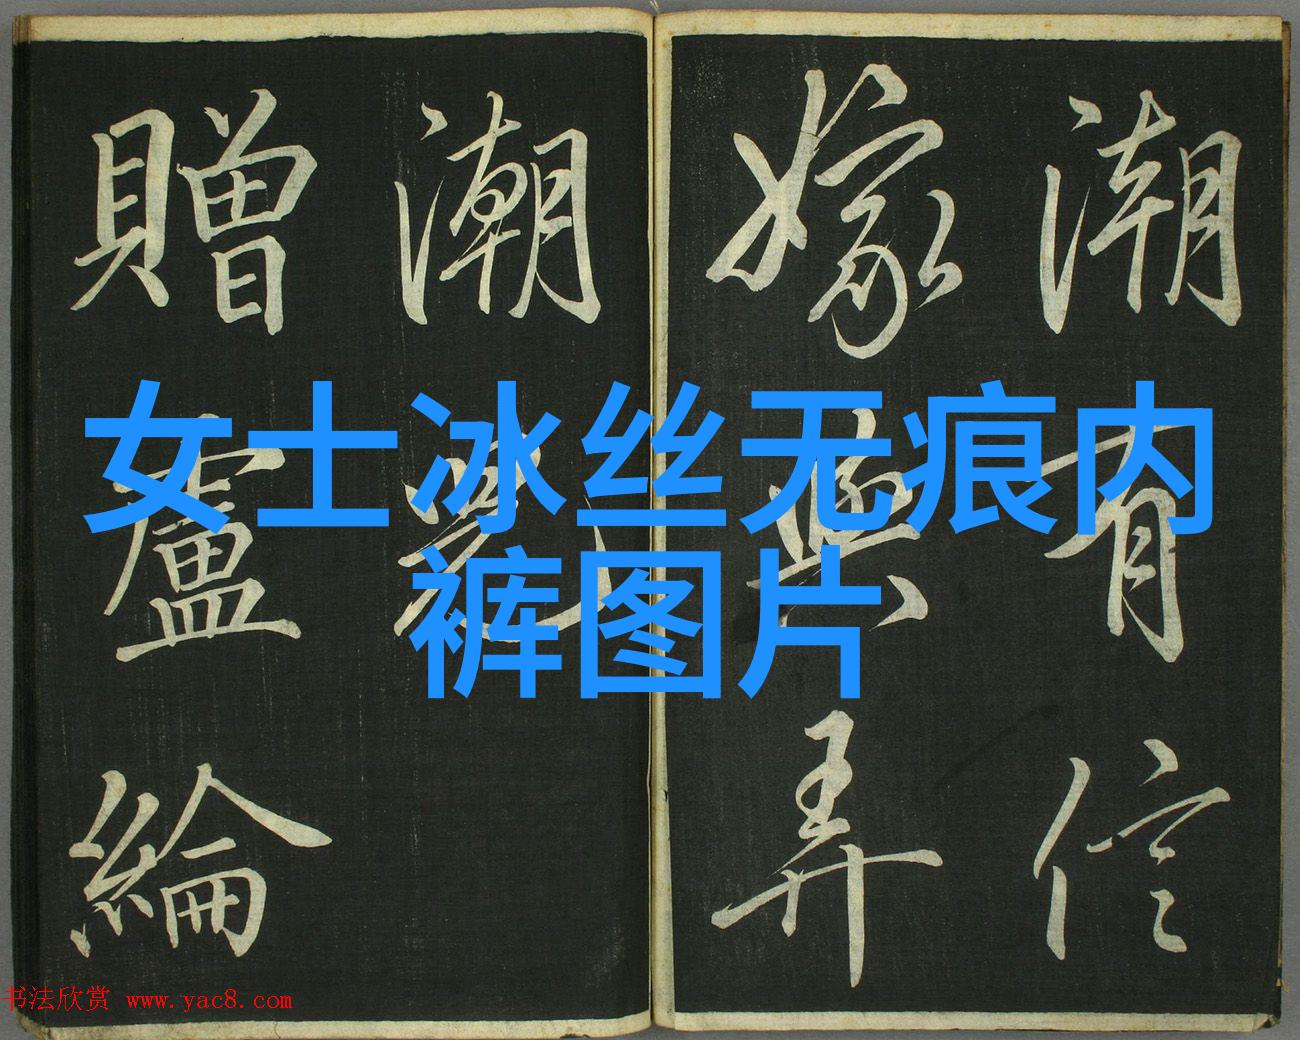 潮有信
嫁與弄
潮兒
贈盧綸
女士冰丝无痕内
裤图片
书法欣赏 www.yac8.com